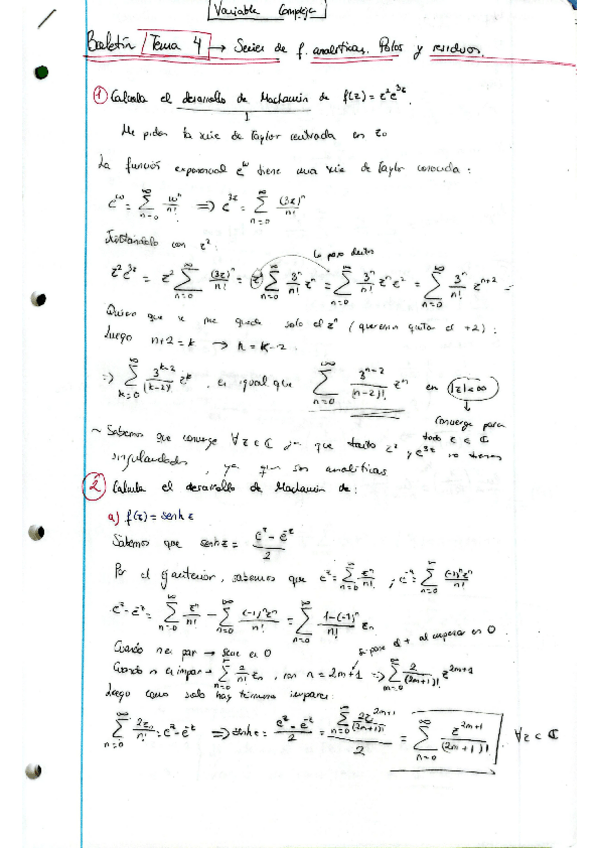 Variable Compleja
Boletín Tema 4 → Series de f. analíticas. Polos y residuos.
① Calcula el desarrollo de Maclaurin de f(z) = z²e^{3z}.
Me piden la serie de Taylor centrada en z₀
La función exponencial e^w tiene una serie de Taylor conocida:
e^w = ∑_{n=0}^{∞} w^n/n! ⇒ e^{3z} = ∑_{n=0}^{∞} (3z)^n/n!
Juntándolo con z²:
lo paso dentro
z²e^{3z} = z² ∑_{n=0}^{∞} (3z)^n/n! = z² ∑_{n=0}^{∞} 3^n/n! z^n = ∑_{n=0}^{∞} 3^n/n! z^n z² = ∑_{n=0}^{∞} 3^n/n! z^{n+2} =
Quiero que se me quede solo el z^n (queremos quitar el +2):
Luego n+2 = k → n = k-2.
⇒ ∑_{k=0}^{∞} 3^{k-2}/(k-2)! z^k, es igual que ∑_{n=0}^{∞} 3^{n-2}/(n-2)! z^n en |z|<∞
Converge para
todo z ∈ ℂ
~ Sabemos que converge ∀z∈ℂ ya que tanto z² y e^{3z} no tienen
singularidades, ya que son analíticas
② Calcula el desarrollo de Maclaurin de:
a) f(z) = senh z
Sabemos que senh z = (e^z - e^{-z})/2
Por el ej anterior, sabemos que e^z = ∑_{n=0}^{∞} z^n/n! ; e^{-z} = ∑_{n=0}^{∞} (-1)^n z^n/n!
e^z - e^{-z} = ∑_{n=0}^{∞} z^n/n! - ∑_{n=0}^{∞} (-1)^n z^n/n! = ∑_{n=0}^{∞} (1-(-1)^n)/n! z^n
Cuando n es par → serie es 0
si pone el + al empezar en 0
Cuando n es impar → ∑_{n=0}^{∞} 2/n! z^n, con n = 2m+1 ⇒ ∑_{m=0}^{∞} 2/(2m+1)! z^{2m+1}
Luego como solo hay términos impares:
∑_{n=0}^{∞} 2z^n/n! = e^z - e^{-z} ⇒ senh z = (e^z - e^{-z})/2 = (∑_{n=0}^{∞} 2z^{2m+1}/(2m+1)!)/2 = ∑_{n=0}^{∞} z^{2m+1}/(2m+1)! ∀z∈ℂ